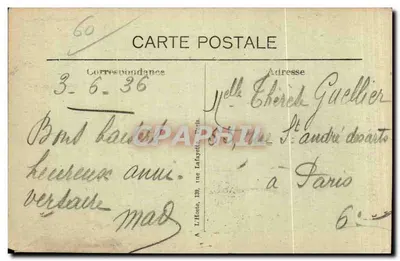 60
CARTE POSTALE
Correspondance
Adresse
3-6-36
Bons baisers
heureux anni-
versaire
mad
Melle Thérèse Guellier
53, rue St andré des arts
à Paris
6e
A L'Hoste, 139, rue Lafayette, Paris
CPARTI